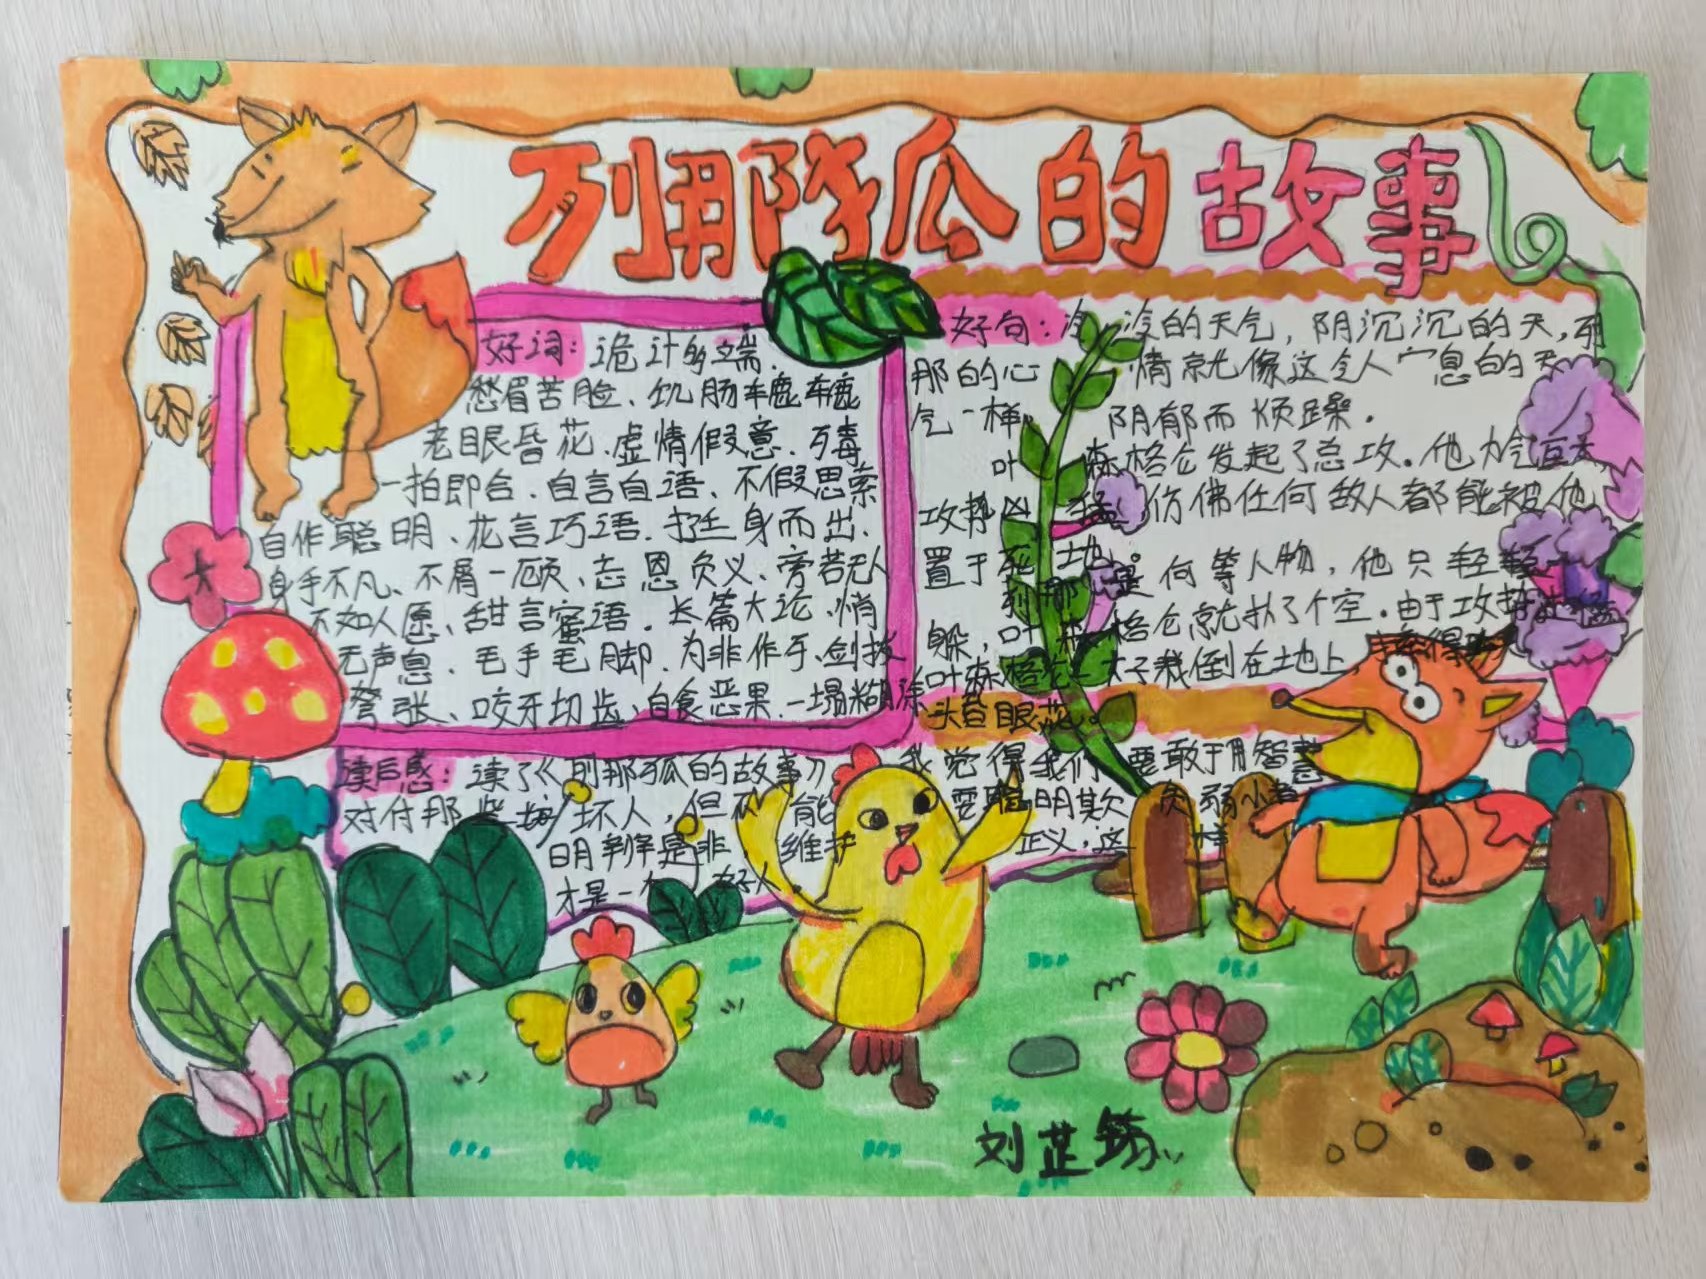 列那狐的故事
好词：诡计多端、
愁眉苦脸、饥肠辘辘
老眼昏花、虚情假意、歹毒
一拍即合、自言自语、不假思索
自作聪明、花言巧语、挺身而出、
身手不凡、不屑一顾、忘恩负义、旁若无人
不如人愿、甜言蜜语、长篇大论、悄
无声息、毛手毛脚、为非作歹、剑拔
弩张、咬牙切齿、自食恶果、一塌糊涂
好句：冷冷的天气，阴沉沉的天，列
那的心情就像这令人窒息的天
气一样，阴郁而烦躁。
叶森格仑发起了总攻。他力气巨大
攻势凶猛，仿佛任何敌人都能被他
置于死地
列那是何等人物，他只轻轻一
躲，叶森格仑就扑了个空。由于攻势
叶森格仑一下子栽倒在地上，摔得
头昏眼花。
读后感：读了《列那狐的故事》我觉得我们要敢于用智慧
对付那些坏人，但不能要聪明欺负弱小者
明辨是非，维护正义，这样
才是一个好人
刘芷筠